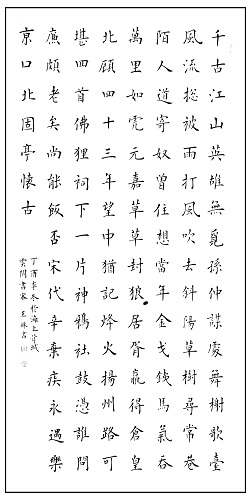 千古江山英雄無覓孫仲謀處舞榭歌臺
風流総被雨打風吹去斜陽草樹尋常巷
陌人道寄奴曾住想當年金戈鐵馬氣吞
萬里如虎元嘉草草封狼居胥贏得倉皇
北顧四十三年望中猶記烽火揚州路可
堪回首佛狸祠下一片神鴉社鼓憑誰問
廉頗老矣尚能飯否宋代辛棄疾永遇樂
京口北固亭懷古
丁酉年冬於海上
雲間書家